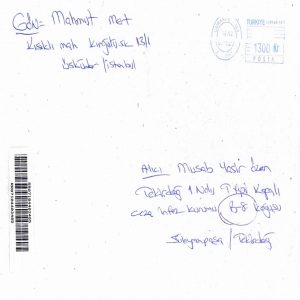 Gön: Mahmut Met
Kısıklı mah 13/1
Üsküdar / istanbul
TÜRKİYE
1300
POSTA
Alıcı Musab Yasir Özen
Tekirdağ 1 Nolu T Tipi Kapalı
ceza infaz kurumu B-8 koğuşu
Süleymanpaşa / Tekirdağ